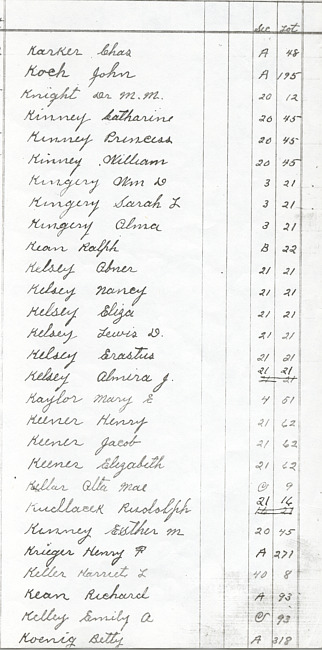 Sec Lot
Karker Chas A 48
Koch John A 195
Knight Dr M. M. 20 12
Kinney Catharine 20 45
Kinney Princess 20 45
Kinney William 20 45
Kingery Wm D 3 21
Kingery Sarah L 3 21
Kingery Alma 3 21
Kean Ralph B 22
Kelsey Abner 21 21
Kelsey Nancy 21 21
Kelsey Eliza 21 21
Kelsey Lewis D. 21 21
Kelsey Erastus 21 21
Kelsey Almira J. 21 21
Kaylor Mary E 4 51
Keener Henry 21 62
Keener Jacob 21 62
Keener Elizabeth 21 62
Kellar Alta Mae 9
Kudlacek Rudolph 21 16
Kinney Esther M 20 45
Krieger Henry P A 271
Keller Harriet L 40 8
Kean Richard A 93
Kelley Emily A 93
Koenig Betty A 318